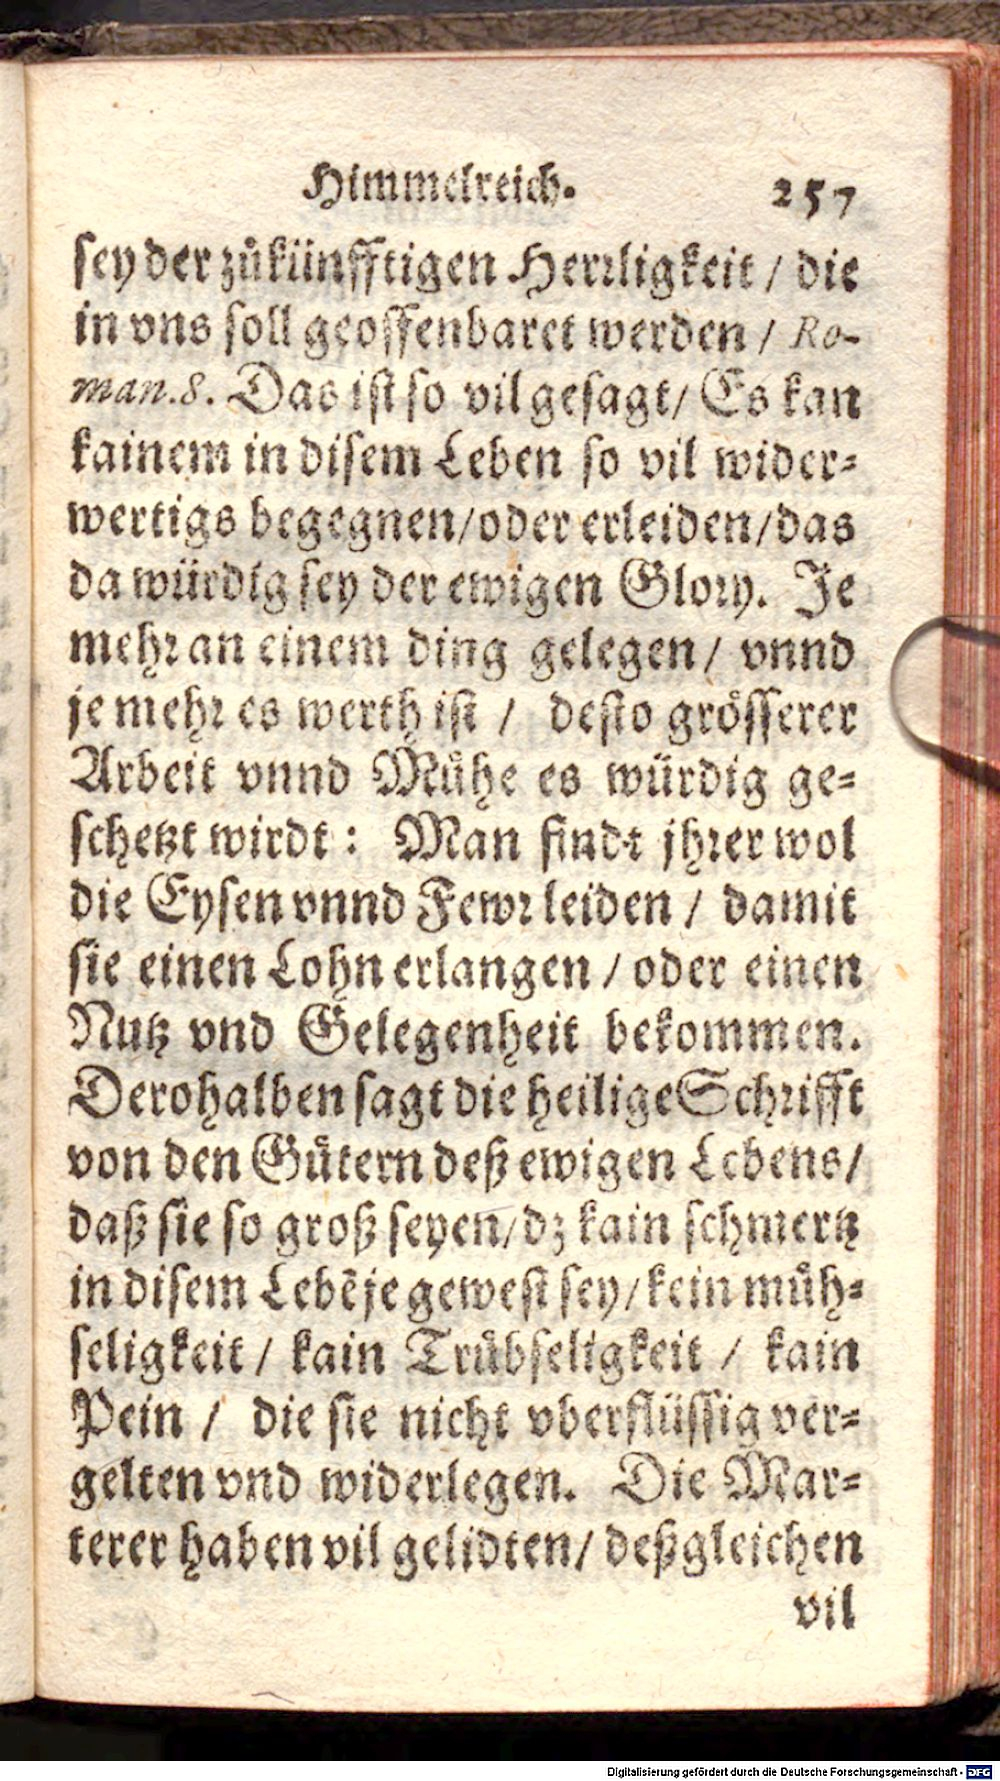 Himmelreich. 257
sey der zůkünfftigen Herrligkeit / die
in vns soll geoffenbaret werden / Ro-
man. 8. Das ist so vil gesagt / Es kan
kainem in disem Leben so vil wider-
wertigs begegnen / oder erleiden / das
da würdig sey der ewigen Glory. Je
mehr an einem ding gelegen / vnnd
je mehr es werth ist / desto grösserer
Arbeit vnnd Můhe es würdig ge-
schetzt wirdt : Man findt jhrer wol
die Eysen vnnd Fewr leiden / damit
sie einen Lohn erlangen / oder einen
Nutz vnd Gelegenheit bekommen.
Derohalben sagt die heilige Schrifft
von den Gůtern deß ewigen Lebens /
daß sie so groß seyen / dz kain schmertz
in disem Lebẽ je gewest sey / kein můh-
seligkeit / kain Trůbseligkeit / kain
Pein / die sie nicht vberflüssig ver-
gelten vnd widerlegen. Die Mar-
terer haben vil gelidten / deßgleichen
vil
Digitalisierung gefördert durch die Deutsche Forschungsgemeinschaft - DFG